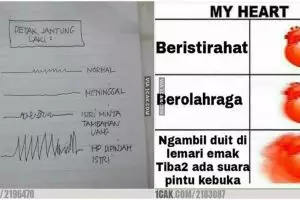 DETAK JANTUNG
LAKI :
NORMAL
MENINGGAL
ISTRI MINTA
TAMBAHAN
UANG
HP DIPINJAM
ISTRI
VIA 1CAK.COM
/2196470
MY HEART
Beristirahat
Berolahraga
Ngambil duit di
lemari emak
Tiba2 ada suara
pintu kebuka
VIA 9GAG.COM
1CAK.COM/2183087